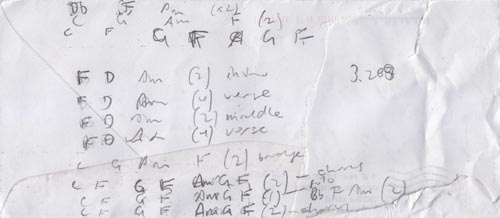 Bb F Am (x2)
C G Am F (2)
C F G F A G F
F D Am (2) intro 3.208
F D Am (4) verse
F D Am (2) middle
F D Am (4) verse
C G Am F (2) bridge
C F G F Am G F (2) – chorus
C F G F Am G F (1) – to Bb F Am (2)
C F G F Am G F (2) – chorus